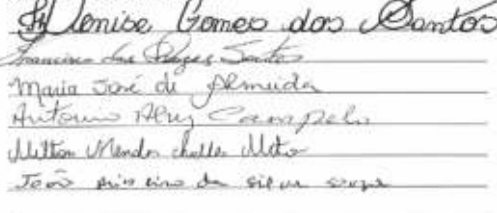 Denise Gomes dos Santos
Francisco das Chagas Santos
Maria José de Almeida
Antonio Alves Campelo
Milton Mendes Neto
João da silva